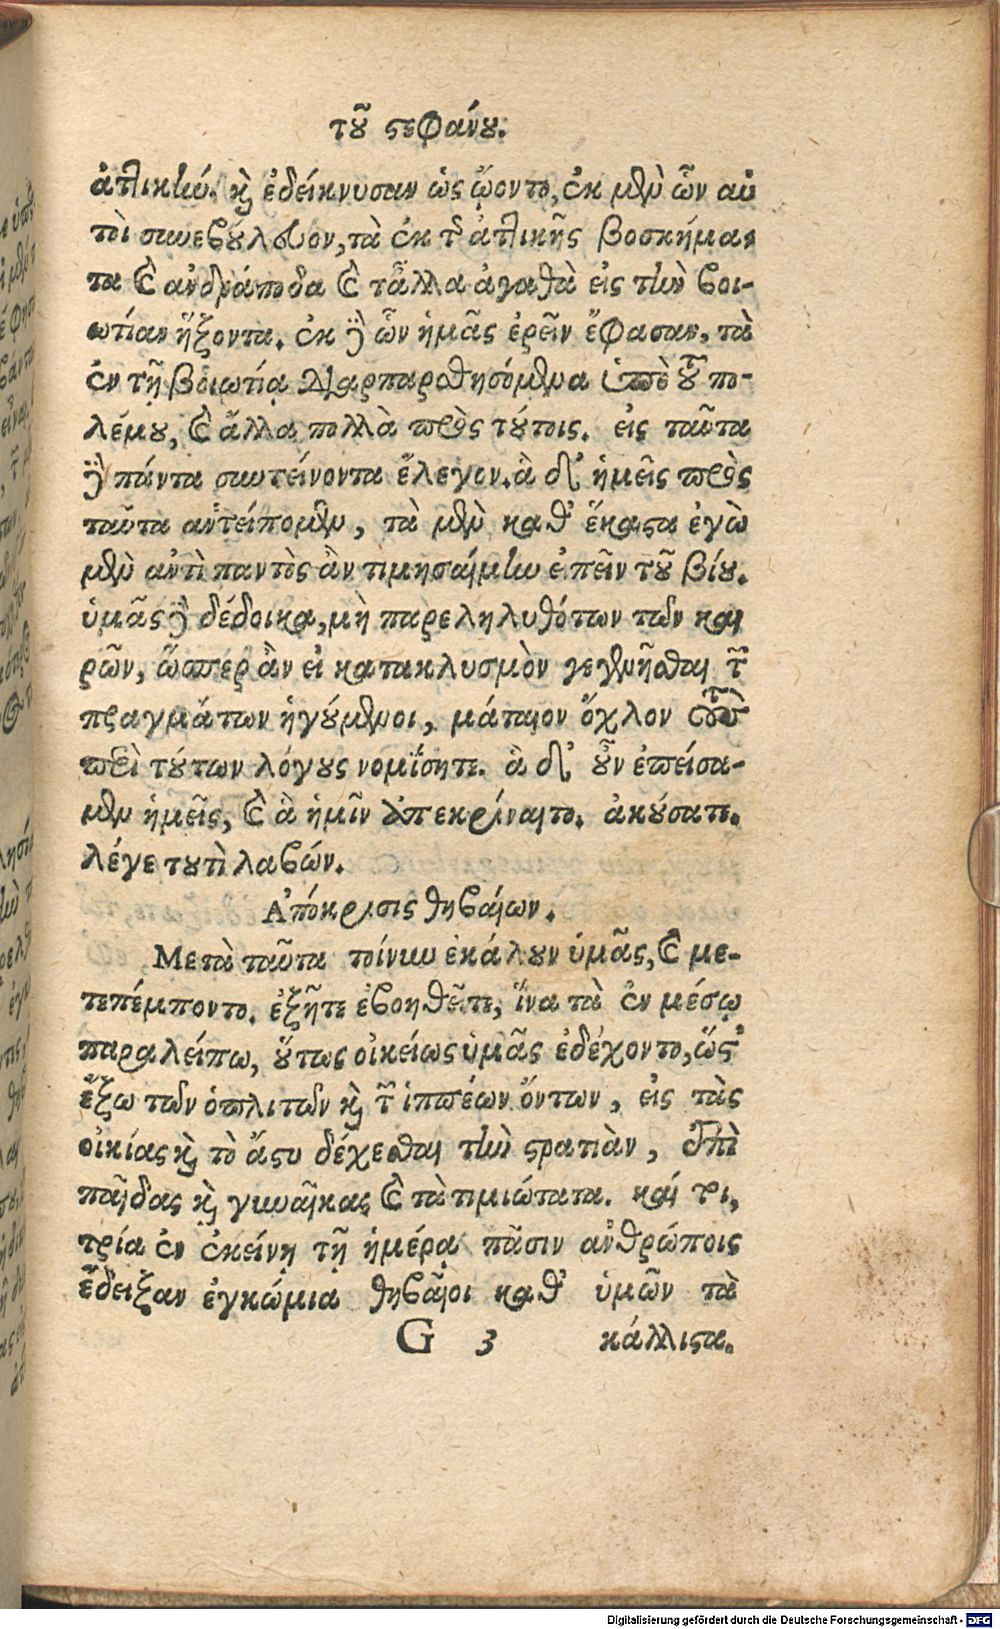 τοῦ στεφάνου.
ἀττικὴν. καὶ ἐδείκνυσαν ὡς ᾤοντο, ἐκ μὲν ὧν αὐ
τοὶ συνεβούλευον, τὰ ἐκ τῆς ἀττικῆς βοσκήμα-
τα καὶ ἀνδράποδα καὶ τἆλλα ἀγαθὰ εἰς τὴν βοι-
ωτίαν ἥξοντα. ἐκ δὲ ὧν ἡμᾶς ἐρεῖν ἔφασαν, τὰ
ἐν τῇ βοιωτίᾳ διαρπαρθησόμενα ὑπὸ τοῦ πο-
λέμου, καὶ ἄλλα πολλὰ πρὸς τούτοις. εἰς ταῦτα
δὲ πάντα συντείνοντα ἔλεγον. ἃ δ' ἡμεῖς πρὸς
ταῦτα ἀντείπομεν, τὰ μὲν καθ' ἕκαστα ἐγὼ
μὲν ἀντὶ παντὸς ἂν τιμησαίμην εἰπεῖν τοῦ βίου.
ὑμᾶς δὲ δέδοικα, μὴ παρεληλυθότων τῶν και
ρῶν, ὥσπερ ἂν εἰ κατακλυσμὸν γεγενῆσθαι τῶν
πραγμάτων ἡγούμενοι, μάταιον ὄχλον τοὺς
περὶ τούτων λόγους νομίσητε. ἃ δ' οὖν ἐπείσα-
μεν ἡμεῖς, καὶ ἃ ἡμῖν ἀπεκρίναντο. ἀκούσατε.
λέγε τουτὶ λαβών.
Ἀπόκρισις θηβαίων.
Μετὰ ταῦτα τοίνυν ἐκάλουν ὑμᾶς, καὶ με-
τεπέμποντο. ἐξῆτε ἐβοηθεῖτε, ἵνα τὰ ἐν μέσῳ
παραλείπω, οὕτως οἰκείως ὑμᾶς ἐδέχοντο, ὥστ'
ἔξω τῶν ὁπλιτῶν καὶ τῶν ἱππέων ὄντων, εἰς τὰς
οἰκίας καὶ τὸ ἄστυ δέχεσθαι τὴν στρατιὰν, ἐπὶ
παῖδας καὶ γυναῖκας καὶ τὰ τιμιώτατα. καί τοι,
τρία ἐν ἐκείνῃ τῇ ἡμέρᾳ πᾶσιν ἀνθρώποις
ἔδειξαν ἐγκώμια θηβαῖοι καθ' ὑμῶν τὰ
G 3 κάλλιστα.
Digitalisierung gefördert durch die Deutsche Forschungsgemeinschaft - DFG